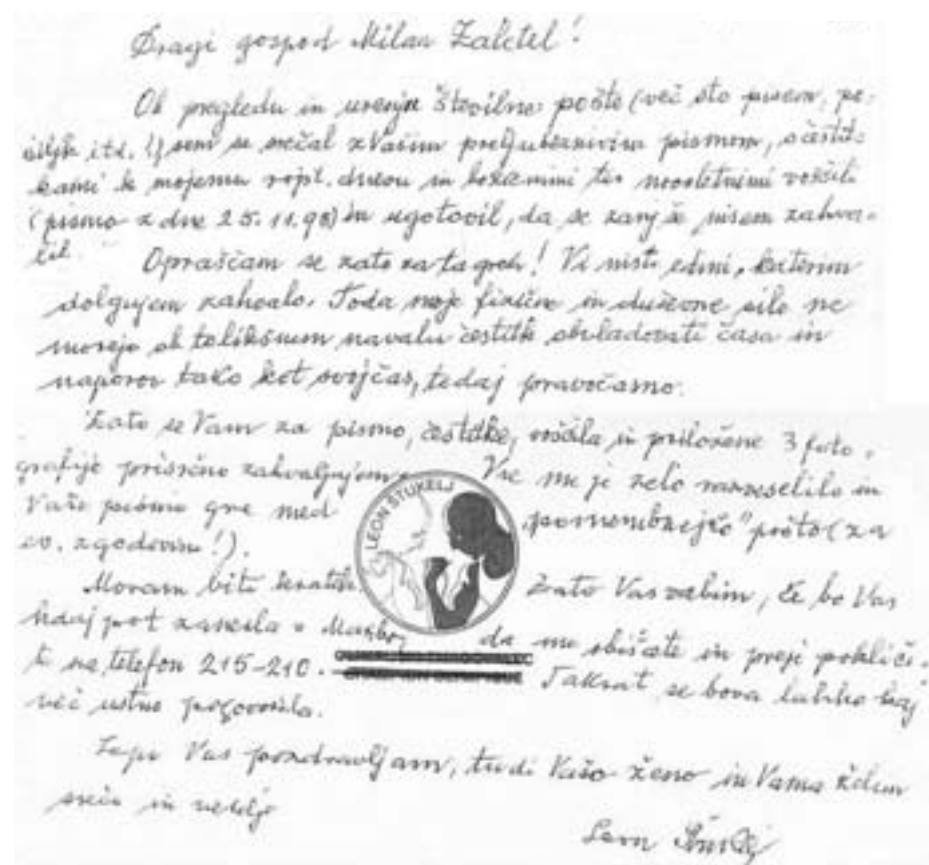 Dragi gospod Milan Zaletel!
Ob pregledu in urejenju številne pošte (več sto pisem, po-
šiljk itd.) sem se srečal z Vašim preljubeznivim pismom, s čestit-
kami k mojemu rojst. dnevu in božičnimi ter novoletnimi voščili
(pismo z dne 25. 11. 98) in ugotovil, da se zanj še nisem zahva-
lil.
Opraščam se zato za ta greh! Vi niste edini, katerim
dolgujem zahvalo. Toda moje fizične in duševne sile ne
morejo ob tolikšnem navalu čestitk obvladovati časa in
naporov tako kot svojčas, tedaj pravočasno.
Zato se Vam za pismo, čestitke, voščila in priložene 3 foto-
grafije prisrčno zahvaljujem. Vse me je zelo razveselilo in
Vaše pismo gre med "pomembnejšo" pošto (za
ev. zgodovino!).
LEON ŠTUKELJ
Moram biti kratek Zato Vas vabim, če bo Vas
kdaj pot zanesla v Maribor da me obiščete in prej pokliče-
te na telefon 215-210. Takrat se bova lahko kaj
več ustno pogovorila.
Lepo Vas pozdravljam, tudi Vašo ženo in Vama želim
sreče in
Leon Štukelj